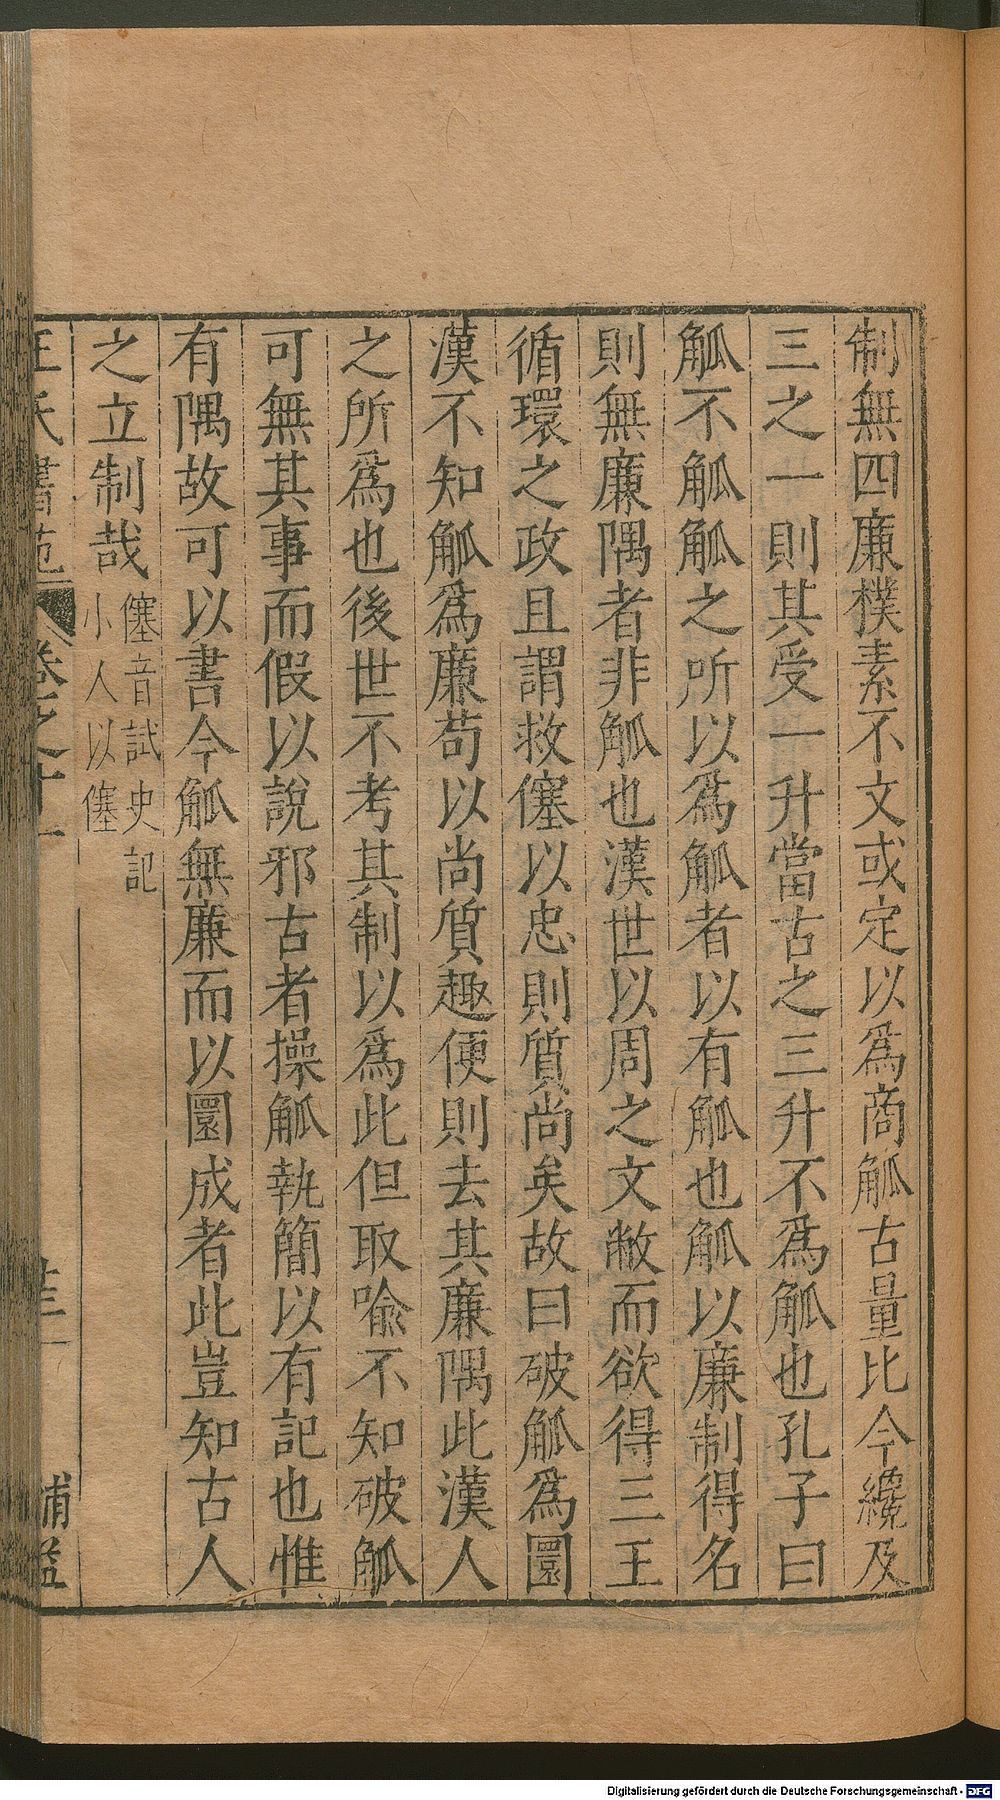 制無四廉樸素不文或定以爲商觚古量比今纔及
三之一則其受一升當古之三升不爲觚也孔子曰
觚不觚觚之所以爲觚者以有觚也觚以廉制得名
則無廉隅者非觚也漢世以周之文敝而欲得三王
循環之政且謂救僿以忠則質尚矣故曰破觚爲圜
漢不知觚爲廉苟以尚質趣便則去其廉隅此漢人
之所爲也後世不考其制以爲此但取喩不知破觚
可無其事而假以說邪古者操觚執簡以有記也惟
有隅故可以書今觚無廉而以圜成者此豈知古人
之立制哉僿音試史記
小人以僿
王氏書苑 卷之十一 補益
Digitalisierung gefördert durch die Deutsche Forschungsgemeinschaft - DFG